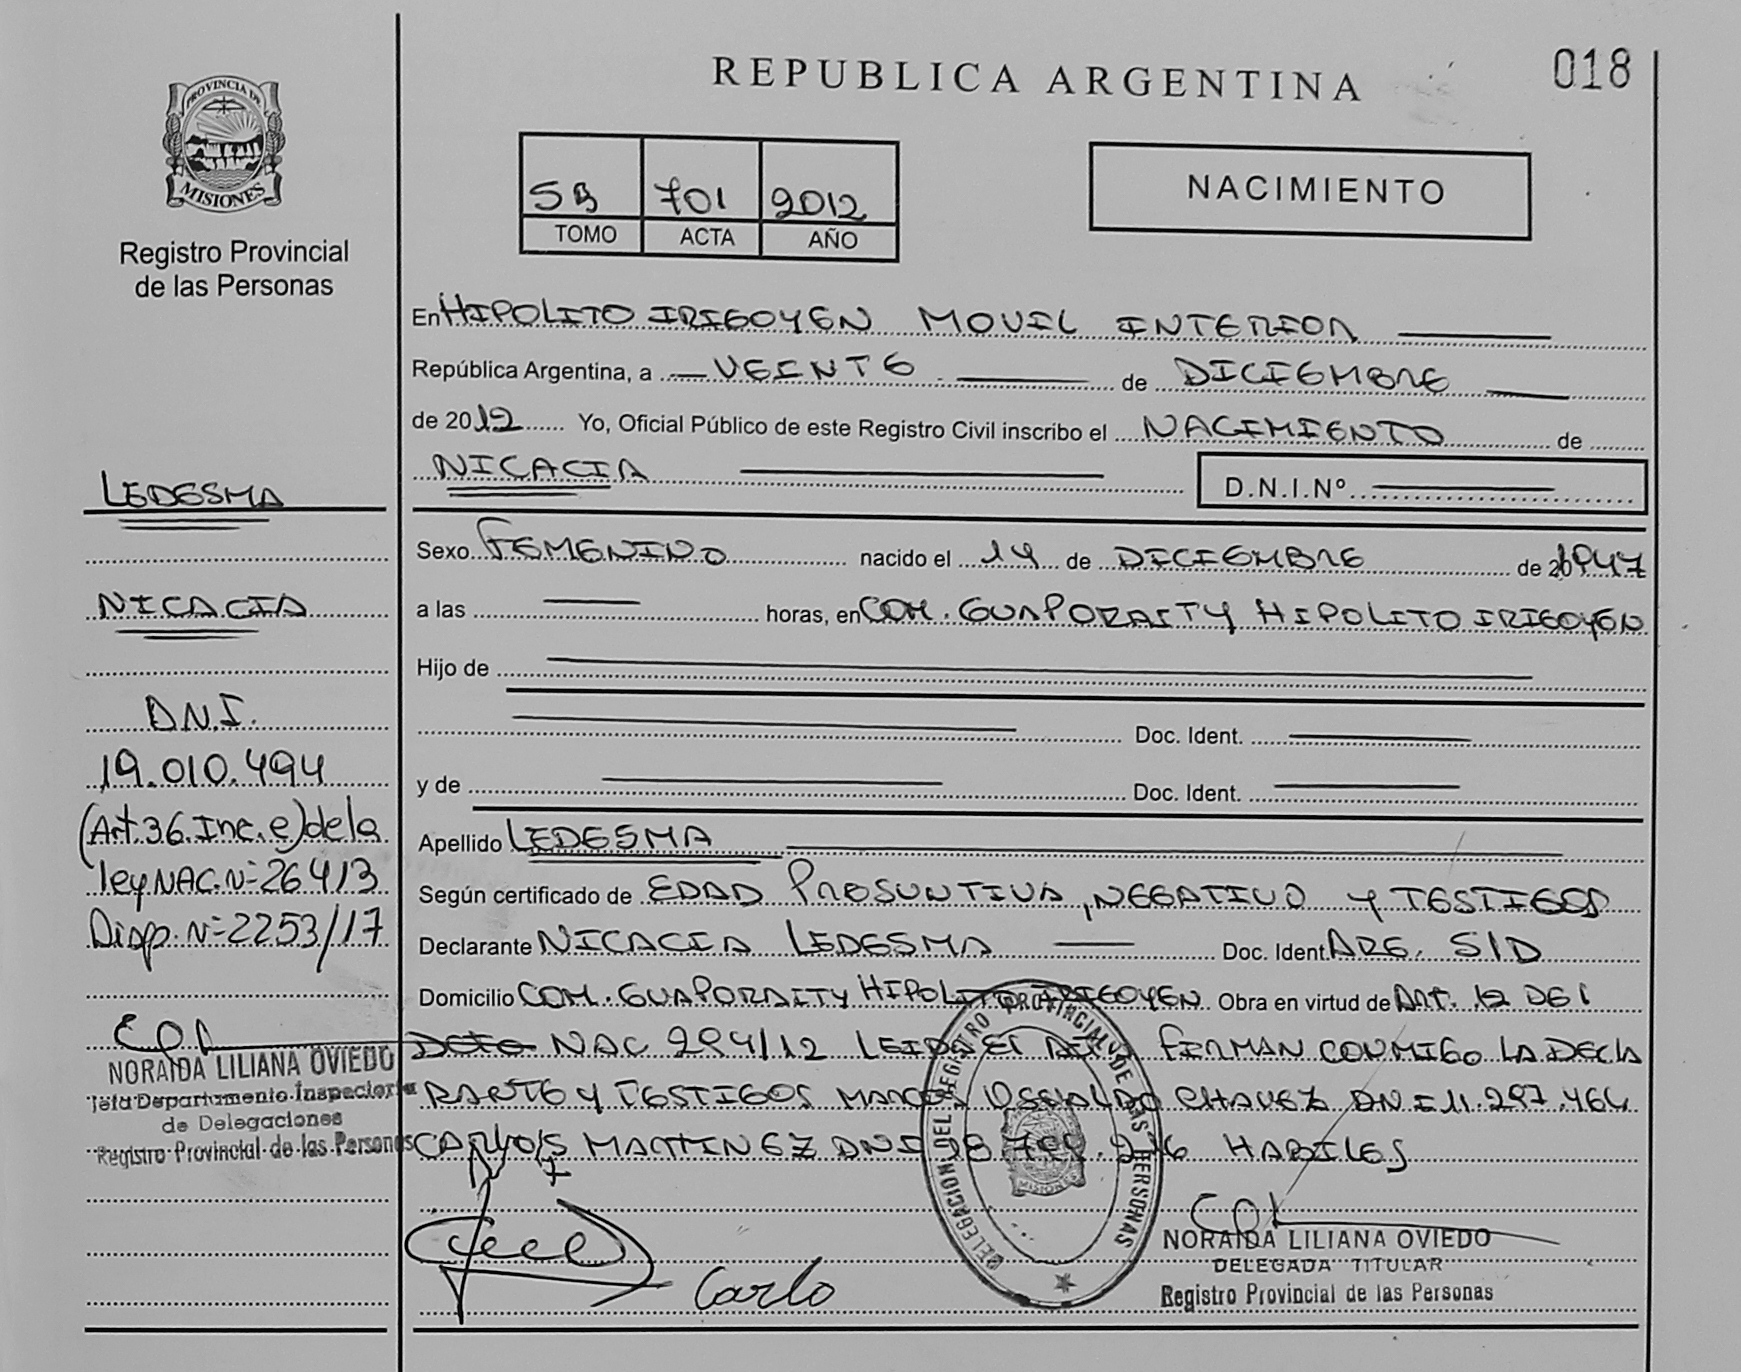 REPUBLICA ARGENTINA
018
PROVINCIA DE
MISIONES
Registro Provincial
de las Personas
5B 701 2012
TOMO ACTA AÑO
NACIMIENTO
En HIPOLITO IRIGOYEN MOVIL INTERIOR
República Argentina, a VEINTE de DICIEMBRE
de 2012 Yo, Oficial Público de este Registro Civil inscribo el NACIMIENTO de
NICACIA D.N.I.Nº
Sexo FEMENINO nacido el 14 de DICIEMBRE de 1947
a las horas, en COM. GUAPORAITY HIPOLITO IRIGOYEN
Hijo de
Doc. Ident.
y de Doc. Ident.
Apellido LEDESMA
Según certificado de EDAD PRESUNTIVA, NEGATIVO Y TESTIGOS
Declarante NICACIA LEDESMA Doc. Ident. ARG. S/D
Domicilio COM. GUAPORAITY HIPOLITO IRIGOYEN Obra en virtud de ART. 12 DEL
DCTO NAC 294/12 LEIDA EL ACTA FIRMAN CONMIGO LA DECLA
RANTE Y TESTIGOS MARCOS OSVALDO CHAVEZ DNI 11.297.464
CARLOS MARTINEZ DNI HABILES
Carlo
DELEGACION DEL REGISTRO PROVINCIAL DE LAS PERSONAS
MISIONES
NORAIDA LILIANA OVIEDO
DELEGADA TITULAR
Registro Provincial de las Personas
LEDESMA
NICACIA
D.N.I.
19.010.494
(Art.36.Inc.e) de la
ley NAC. Nº 26413
Disp. Nº 2253/17
NORAIDA LILIANA OVIEDO
Jefa Departamento Inspectoria
de Delegaciones
Registro Provincial de las Personas